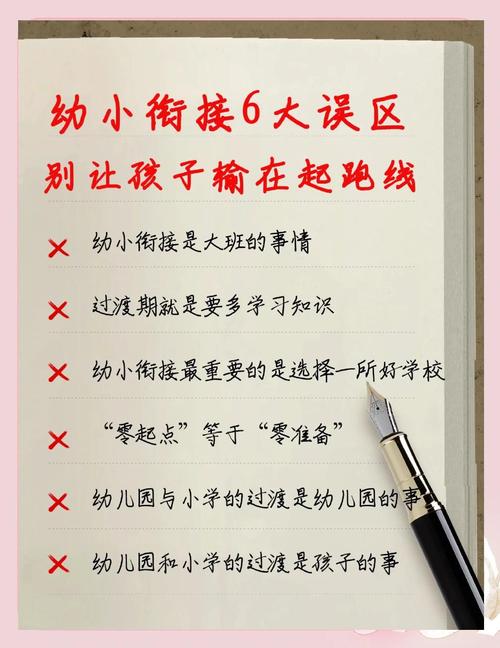 幼小衔接6大误区
别让孩子输在起跑线
幼小衔接是大班的事情
过渡期就是要多学习知识
幼小衔接最重要的是选择一所好学校
“零起点”等于“零准备”
幼儿园与小学的过渡是幼儿园的事
幼儿园和小学的过渡是孩子的事